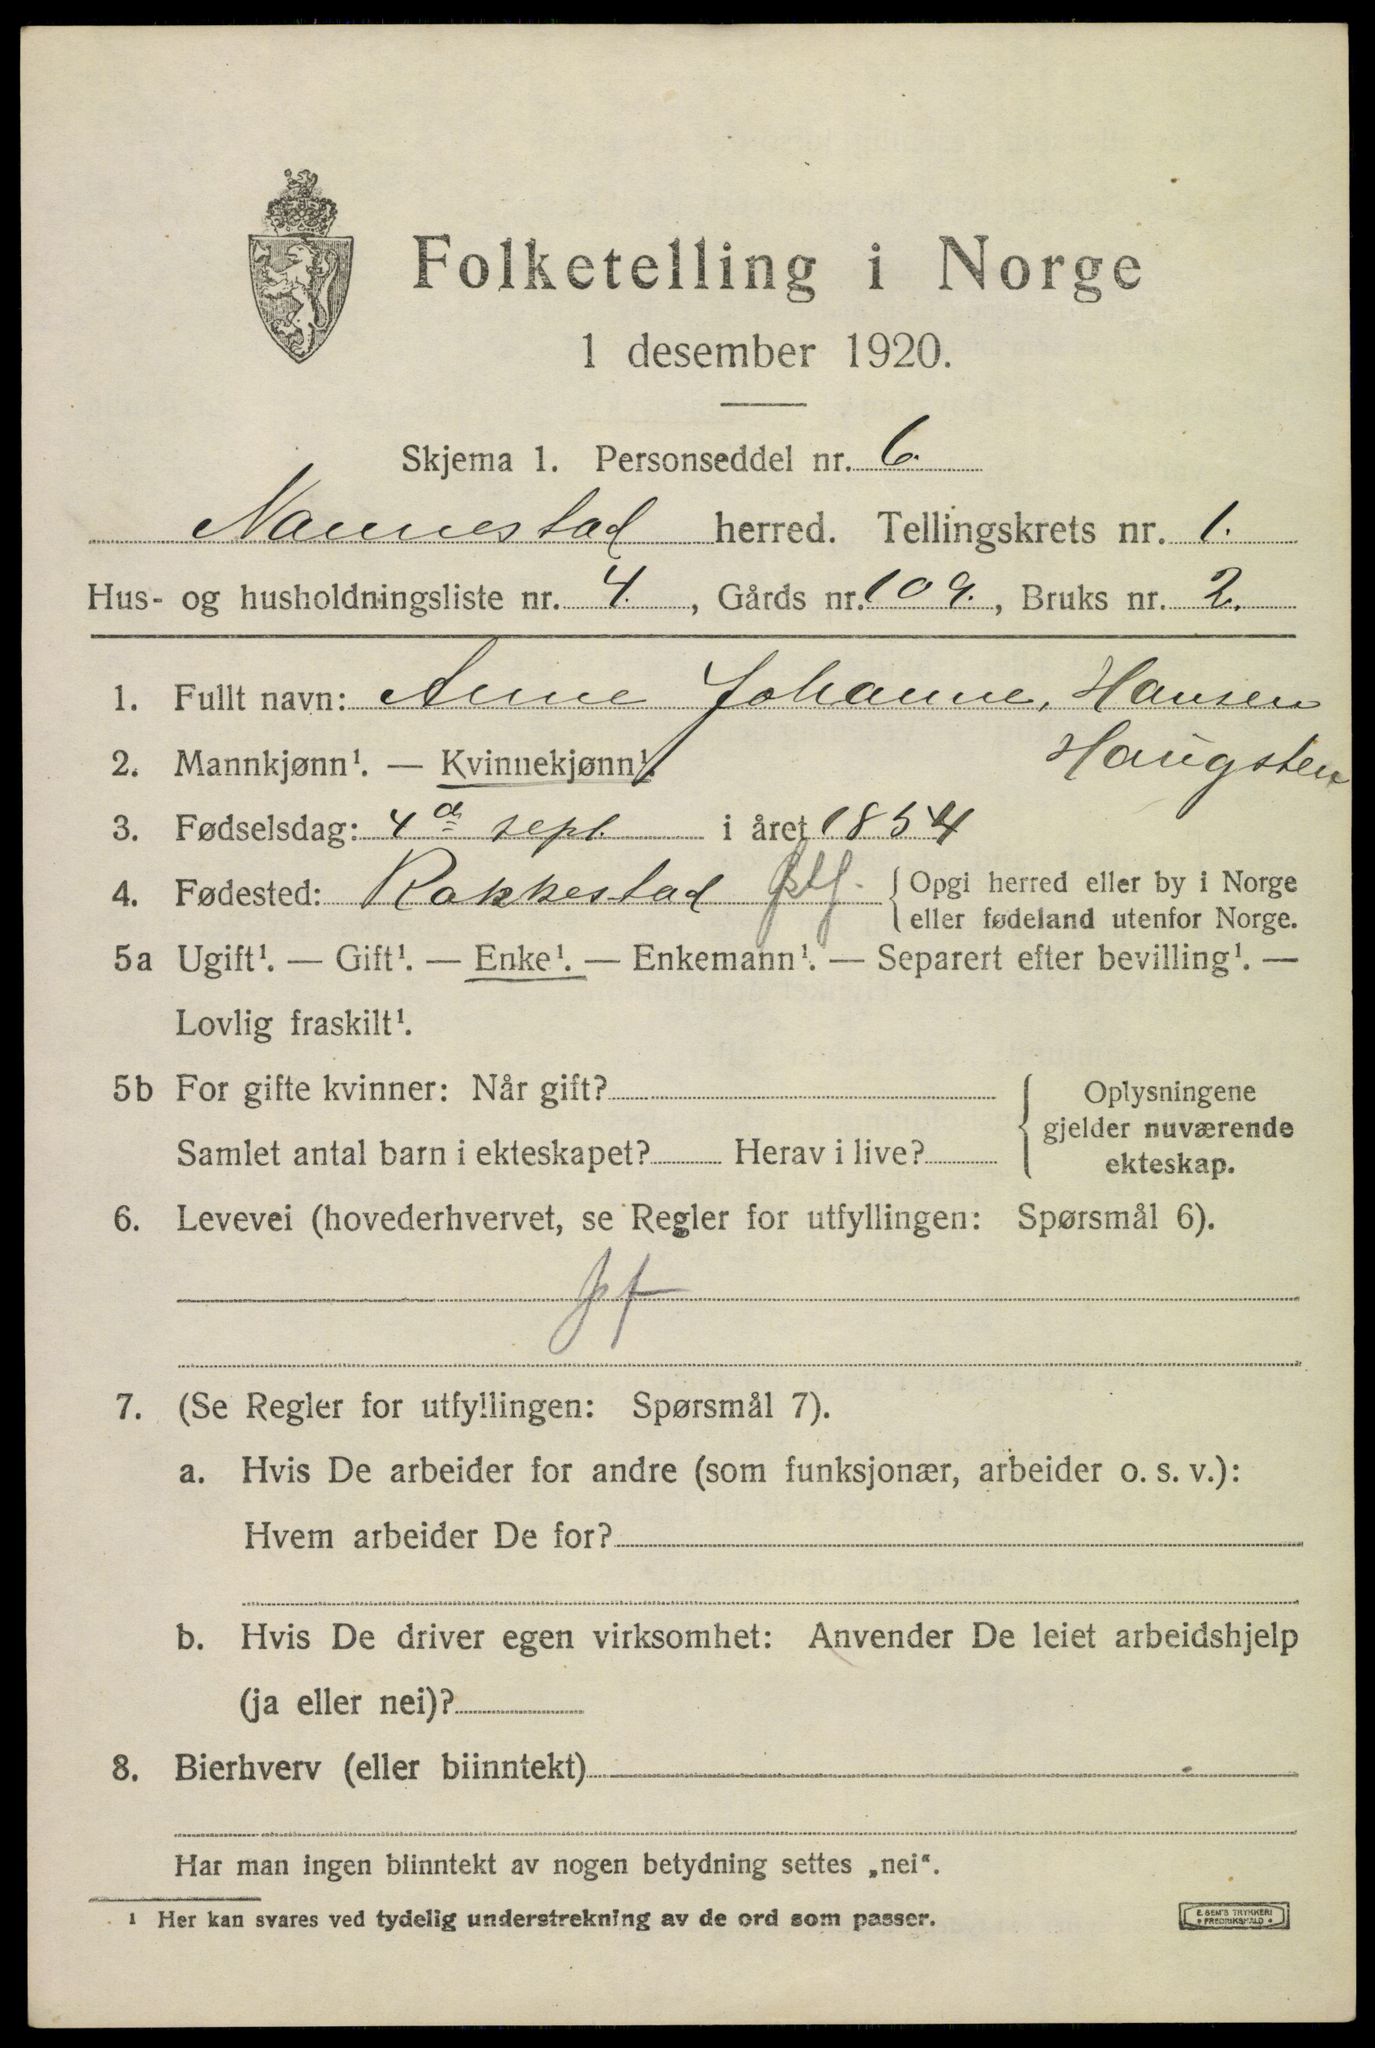 Folketelling i Norge
1 desember 1920.
Skjema 1. Personseddel nr. 6.
Nannestad herred. Tellingskrets nr. 1.
Hus- og husholdningsliste nr. 4., Gårds nr. 109., Bruks nr. 2.
1. Fullt navn: Anne Johanne, Hansen
Haugsten
2. Mannkjønn¹. — Kvinnekjønn¹.
3. Fødselsdag: 4de sept. i året 1854
4. Fødested: Rakkestad { Opgi herred eller by i Norge
eller fødeland utenfor Norge.
5a Ugift¹. — Gift¹. — Enke¹. — Enkemann¹. — Separert efter bevilling¹. —
Lovlig fraskilt¹.
5b For gifte kvinner: Når gift?
Samlet antal barn i ekteskapet? Herav i live?
{ Oplysningene
gjelder nuværende
ekteskap.
6. Levevei (hovederhvervet, se Regler for utfyllingen: Spørsmål 6).
7. (Se Regler for utfyllingen: Spørsmål 7).
a. Hvis De arbeider for andre (som funksjonær, arbeider o. s. v.):
Hvem arbeider De for?
b. Hvis De driver egen virksomhet: Anvender De leiet arbeidshjelp
(ja eller nei)?
8. Bierhverv (eller biinntekt)
Har man ingen biinntekt av nogen betydning settes „nei“.
¹ Her kan svares ved tydelig understrekning av de ord som passer.
E. SEM'S TRYKKERI
• FREDRIKSHALD •